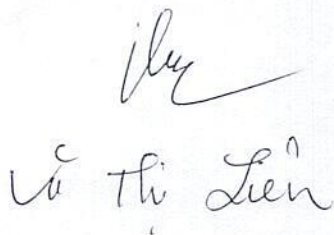 Vũ Thị Liên